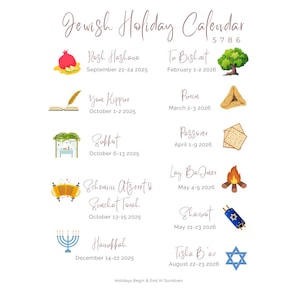 Jewish Holiday Calendar
5786
Rosh Hashana
September 21-24 2025
Yom Kippur
October 1-2 2025
Sukkot
October 6-13 2025
Shemini Atzeret &
Simchat Torah
October 13-15 2025
Hanukkah
December 14-22 2025
Tu Bishvat
February 1-2 2026
Purim
March 2-3 2026
Passover
April 1-9 2026
Lag BaOmer
May 4-5 2026
Shavuot
May 21-23 2026
Tisha B'av
August 22-23 2026
Holidays Begin & End At Sundown